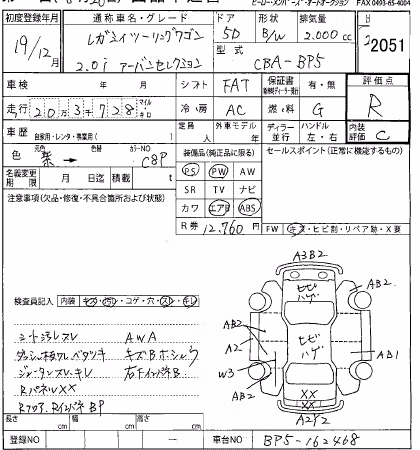 FAX 0493-65-4004
初度登録年月 通称車名・グレード ドア 形状 排気量
19/12 レガシィツーリングワゴン 5D B/W 2.000cc 2051
2.0i アーバンセレクション 型式 CBA-BP5
車検 年 月 シフト FAT 保証書 有・無 評価点
走行 20万3千728 マイル キロ 冷房 AC 燃料 G R
車歴 自家用・レンタ・事業用( ) 定員 人 外車モデル 年 ディーラー 並行 ハンドル 左・右 内装評価 C
色 元色 茶 → 色替 カラーNO C8P 装備品(純正品に限る) セールスポイント(正常に機能するもの)
PS PW AW
名義変更期限 月 日迄 積載 t SR TV ナビ
注意事項(欠品・修復・不具合箇所および状態) カワ エアB ABS
R券 12,760円 FW キズ・ヒビ割・リペア跡・X要
A3B2
検査員記入 内装 キズ・汚レ・コゲ・穴・スレ・キレ
ヒビ ハゲ AB2
AB2
シートヨゴレスレ AWA A2 ヒビ ハゲ AB1
ダッシュ板ワレベタツキ キズBホシュウ W3
右FインパネB AB2
RパネルXX XX
RインパネBP A2Y2
長さ cm 幅 cm 高さ cm
登録NO ― 車台NO BP5-162468